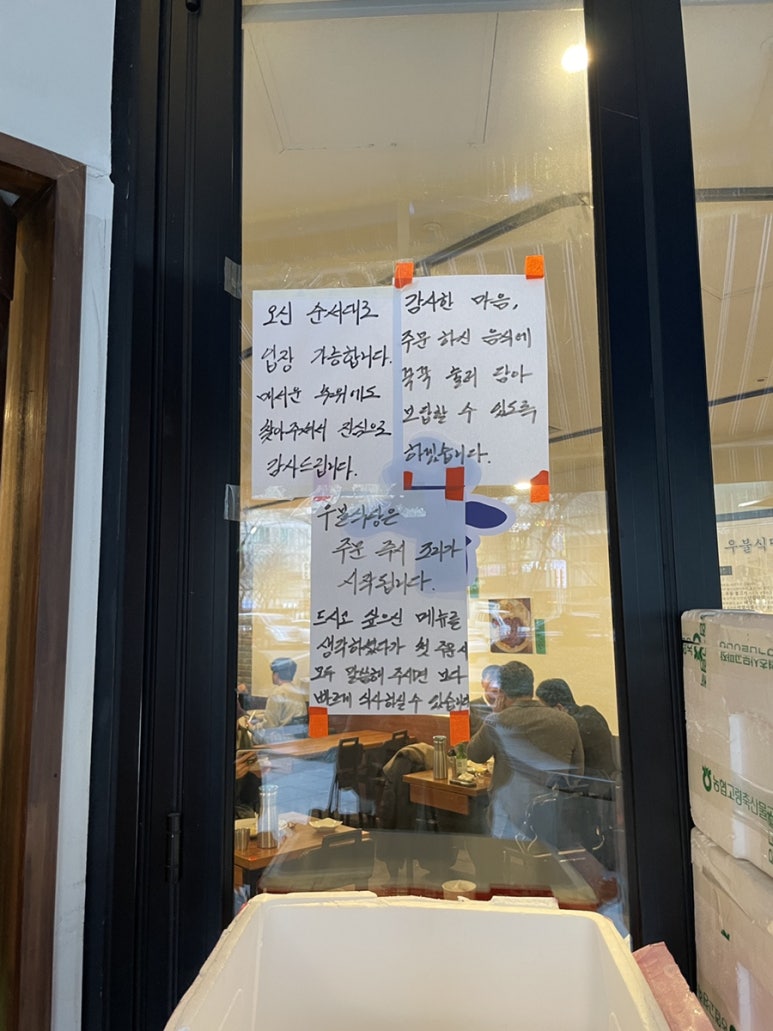 오신 순서대로
입장 가능합니다.
매서운 추위에도
찾아주셔서 진심으로
감사드립니다.
감사한 마음,
주문 하신 음식에
꾹꾹 눌러 담아
보답할 수 있도록
하겠습니다.
우불식당은
주문 즉시 조리가
시작됩니다.
드시고 싶으신 메뉴를
생각하셨다가 첫 주문시
모두 말씀해 주시면 보다
빠르게 식사하실 수 있습니다
우불식
농협고령축산물